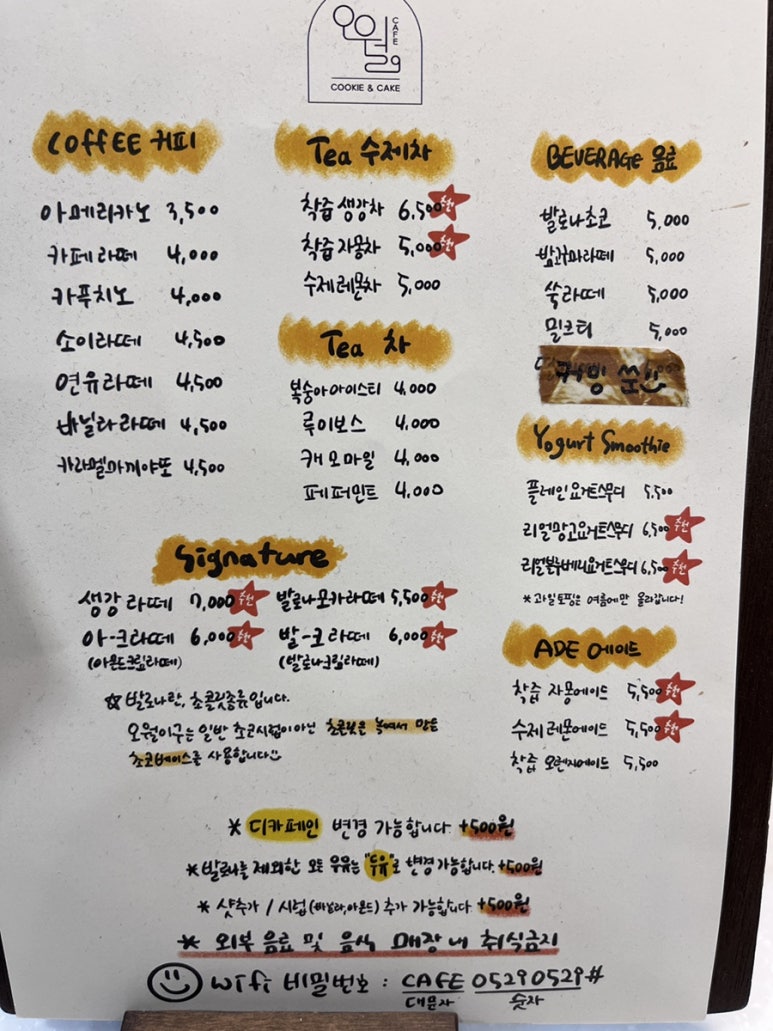 오월29
CAFE
COOKIE & CAKE
COFFEE 커피
아메리카노 3,500
카페라떼 4,000
카푸치노 4,000
소이라떼 4,500
연유라떼 4,500
바닐라라떼 4,500
카라멜마끼야또 4,500
Tea 수제차
착즙생강차 6,500 추천
착즙자몽차 5,000 추천
수제레몬차 5,000
Tea 차
복숭아아이스티 4,000
루이보스 4,000
캐모마일 4,000
페퍼민트 4,000
BEVERAGE 음료
발로나초코 5,000
밤고구마라떼 5,000
쑥라떼 5,000
밀크티 5,000
커밍 쑨
Yogurt Smoothie
플레인요거트스무디 5,500
리얼망고요거트스무디 6,500 추천
리얼블루베리요거트스무디 6,500 추천
*과일토핑은 여름에만 올라갑니다!
ADE 에이드
착즙 자몽에이드 5,500 추천
수제 레몬에이드 5,500 추천
착즙 오렌지에이드 5,500
Signature
생강 라떼 7,000 추천 발로나모카라떼 5,500 추천
아-크라떼 6,000 추천 발-크라떼 6,000 추천
(아몬드크림라떼) (발로나크림라떼)
☆ 발로나란, 초콜릿종류입니다.
오월이구는 일반 초코시럽이아닌 초콜릿을 녹여서 만든
초코베이스를 사용합니다
* 디카페인 변경 가능합니다 +500원
* 발로나를 제외한 모든 우유는 "두유"로 변경 가능합니다. +500원
* 샷추가 / 시럽(바닐라,아몬드) 추가 가능합니다 +500원
* 외부 음료 및 음식 매장 내 취식금지
wifi 비밀번호 : CAFE 05290529#
대문자 숫자